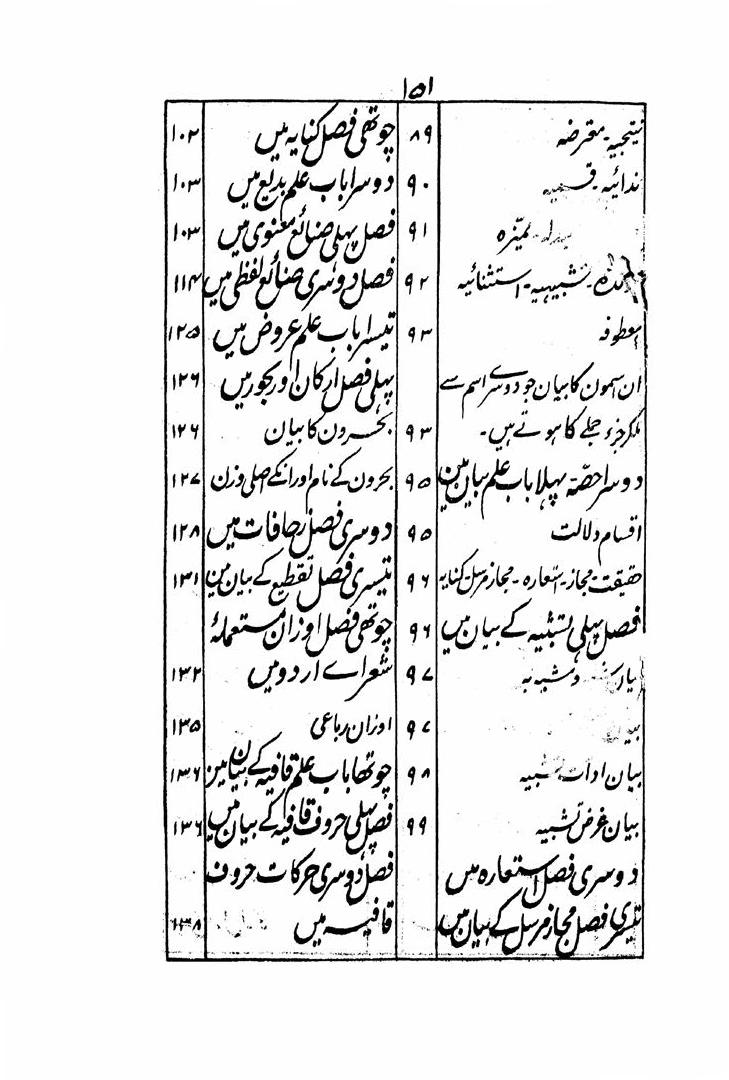 ۱۵۱
نتیجیہ۔ معترضہ ۸۹
ندائیہ۔ قسمیہ ۹۰
ممیّزہ ۹۱
تشبیہیہ۔ استثنائیہ ۹۲
معطوفہ ۹۳
ان اسمون کا بیان جو دوسرے اسم سے
ملکر جزء جملے کا ہوتے ہیں۔ ۹۳
دوسرا حصّہ پہلا باب علم بیان مین ۹۵
اقسام دلالت ۹۵
حقیقت۔ مجاز۔ استعارہ۔ مجاز مرسل۔ کنایہ ۹۶
فصل پہلی تشبیہ کے بیان میں ۹۶
و مشبہ بہ ۹۷
بیان ۹۷
بیان ادات تشبیہ ۹۸
بیان غرض تشبیہ ۹۹
دوسری فصل استعارہ میں
تیسری فصل مجاز مرسل کے بیان میں
چوتھی فصل کنایہ میں ۱۰۲
دوسرا باب علم بدیع میں ۱۰۳
فصل پہلی صنائع معنوی میں ۱۰۳
فصل دوسری صنائع لفظی میں ۱۱۴
تیسرا باب علم عروض میں ۱۲۵
پہلی فصل ارکان اور بحور میں ۱۲۶
بحرون کا بیان ۱۲۶
بحرون کے نام اور انکے اصلی وزن ۱۲۷
دوسری فصل زحافات میں ۱۲۸
تیسری فصل تقطیع کے بیان مین ۱۳۱
چوتھی فصل اوزان مستعملۂ
شعراے اردو میں ۱۳۲
اوزان رباعی ۱۳۵
چوتھا باب علم قافیہ کے بیان مین ۱۳۶
فصل پہلی حروف قافیہ کے بیان میں ۱۳۶
فصل دوسری حرکات حروف
قافیہ میں ۱۳۸